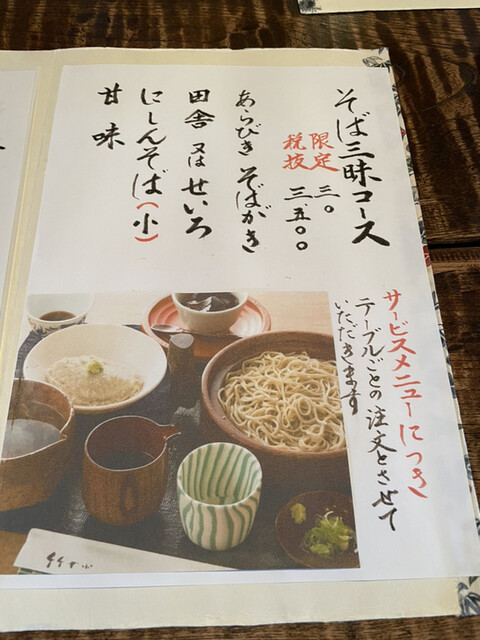 そば三昧コース
限定 三〇
税抜 三、五〇〇
あらびき そばがき
田舎 又は せいろ
にしんそば(小)
甘味
サービスメニューにつき
テーブルごとの注文とさせて
いただきます